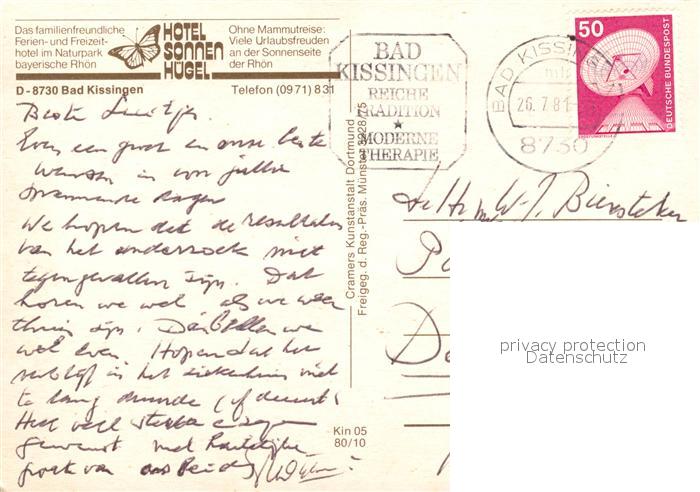 Das familienfreundliche
Ferien- und Freizeit-
hotel im Naturpark
bayerische Rhön
HOTEL
SONNEN
HÜGEL
Ohne Mammutreise:
Viele Urlaubsfreuden
an der Sonnenseite
der Rhön
D - 8730 Bad Kissingen
Telefon (09 71) 8 31
Beste
Even een groet en onze beste
wensen in voor jullie
spannende dagen
We hopen dat de resultaten
van het onderzoek niet
tegengevallen zijn. Dat
horen we wel als we weer
thuis zijn. Dan bellen we
wel even. Hopen dat het
verblijf in het ziekenhuis niet
te lang duurde (of duurt)
Heel veel sterkte
gewenst met hartelijke
groet van ons beide
BAD
KISSINGEN
REICHE
TRADITION
★
MODERNE
THERAPIE
BAD KISSINGEN 1
mlr
26.7.81
8730
50
DEUTSCHE BUNDESPOST
Cramers Kunstanstalt Dortmund
Freigeg. d. Reg.-Präs. Münster 3928/75
Kin 05
80/10
W. J. Biersteker
privacy protection
Datenschutz